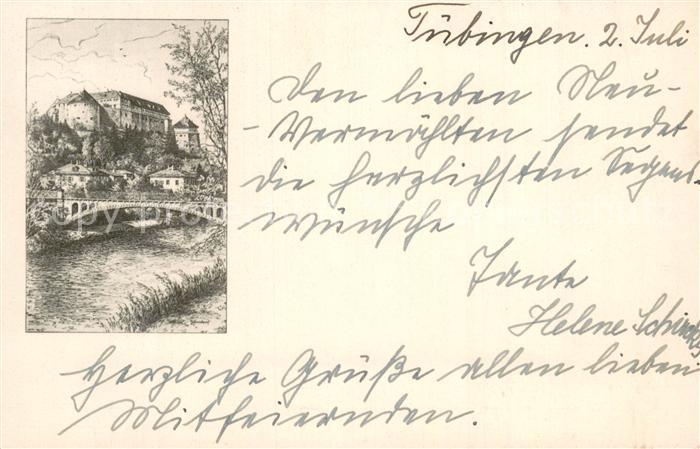 Tübingen. 2. Juli
Den lieben Neu-
-Vermählten sendet
die herzlichsten Segens-
wünsche
Tante
Helene
Herzliche Grüße allen lieben
Mitfeiernden.